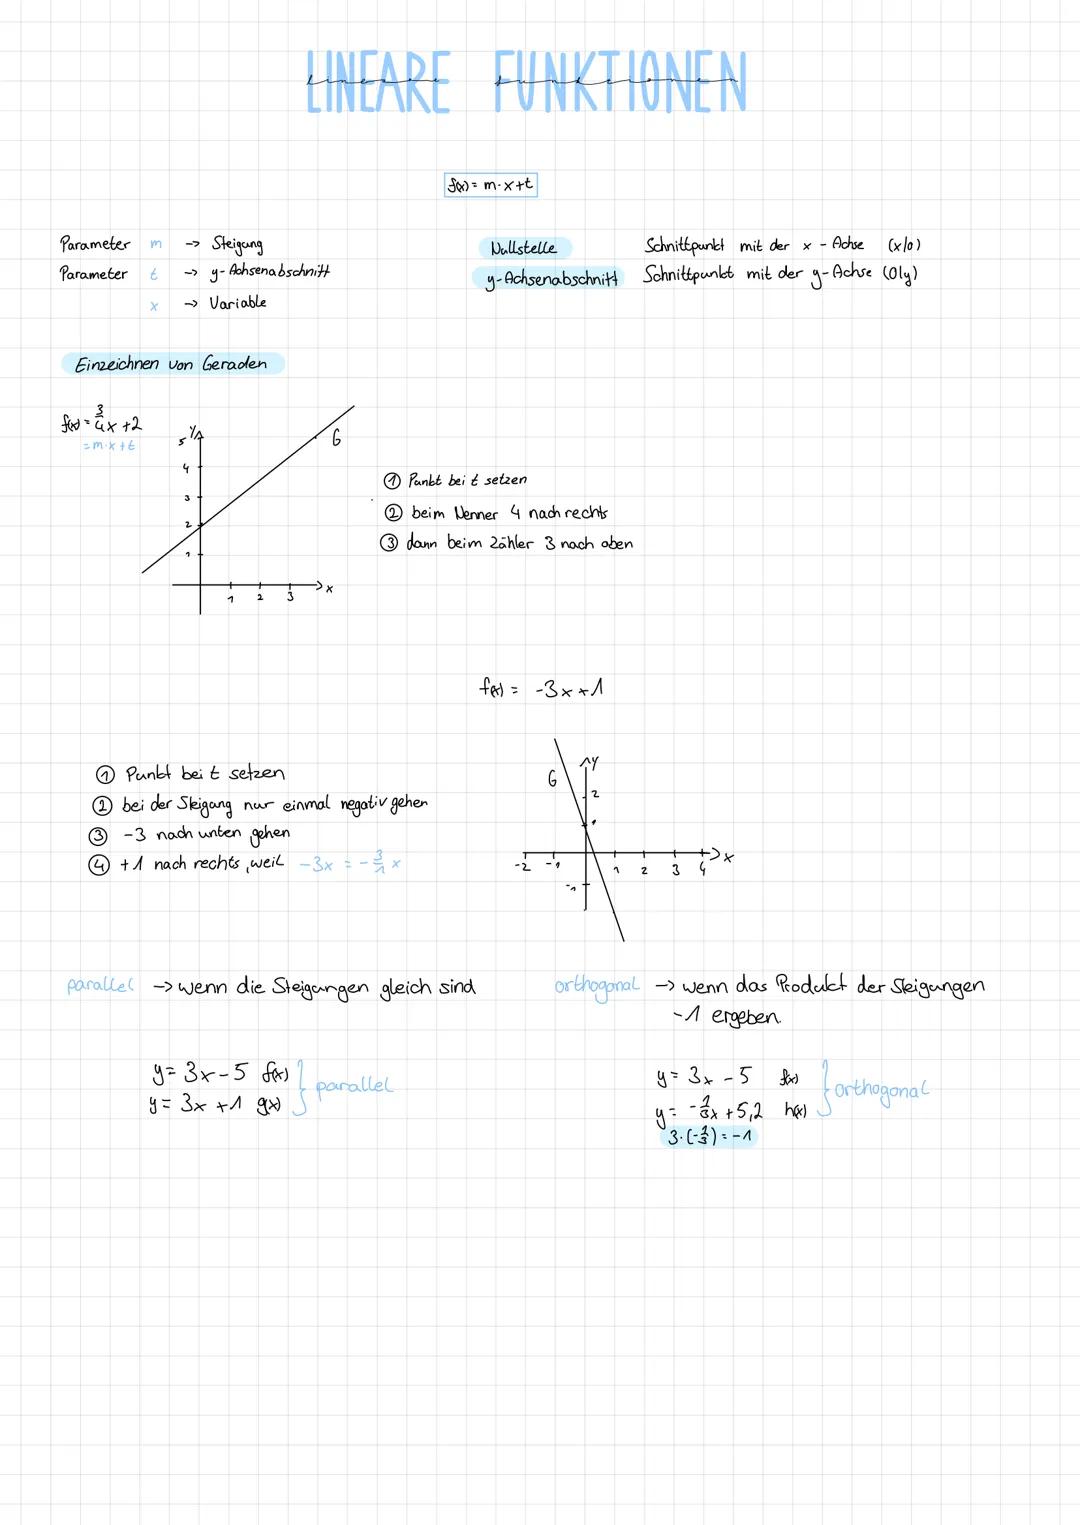 LINEARE FUNKTIONEN
lineare funktionen
f(x) = m·x+t
Parameter m → Steigung
Parameter t → y-Achsenabschnitt
x → Variable
Nullstelle Schnittpunkt mit der x-Achse (x/0)
y-Achsenabschnitt Schnittpunkt mit der y-Achse (0/y)
Einzeichnen von Geraden
f(x) = 3/4x +2
=m·x+t
y
5
4
3
2
1
1 2 3
x
G
① Punkt bei t setzen
② beim Nenner 4 nach rechts
③ dann beim Zähler 3 nach oben
f(x) = -3x+1
① Punkt bei t setzen
② bei der Steigung nur einmal negativ gehen
③ -3 nach unten gehen
④ +1 nach rechts, weil -3x = -3/1 x
G
y
2
1
-2 -1 1 2 3 4 x
-1
parallel → wenn die Steigungen gleich sind
y= 3x-5 f(x)
y= 3x +1 g(x)
parallel
orthogonal → wenn das Produkt der Steigungen
-1 ergeben.
y= 3x -5 f(x)
y= -1/3x +5,2 h(x)
orthogonal
3·(-1/3) = -1